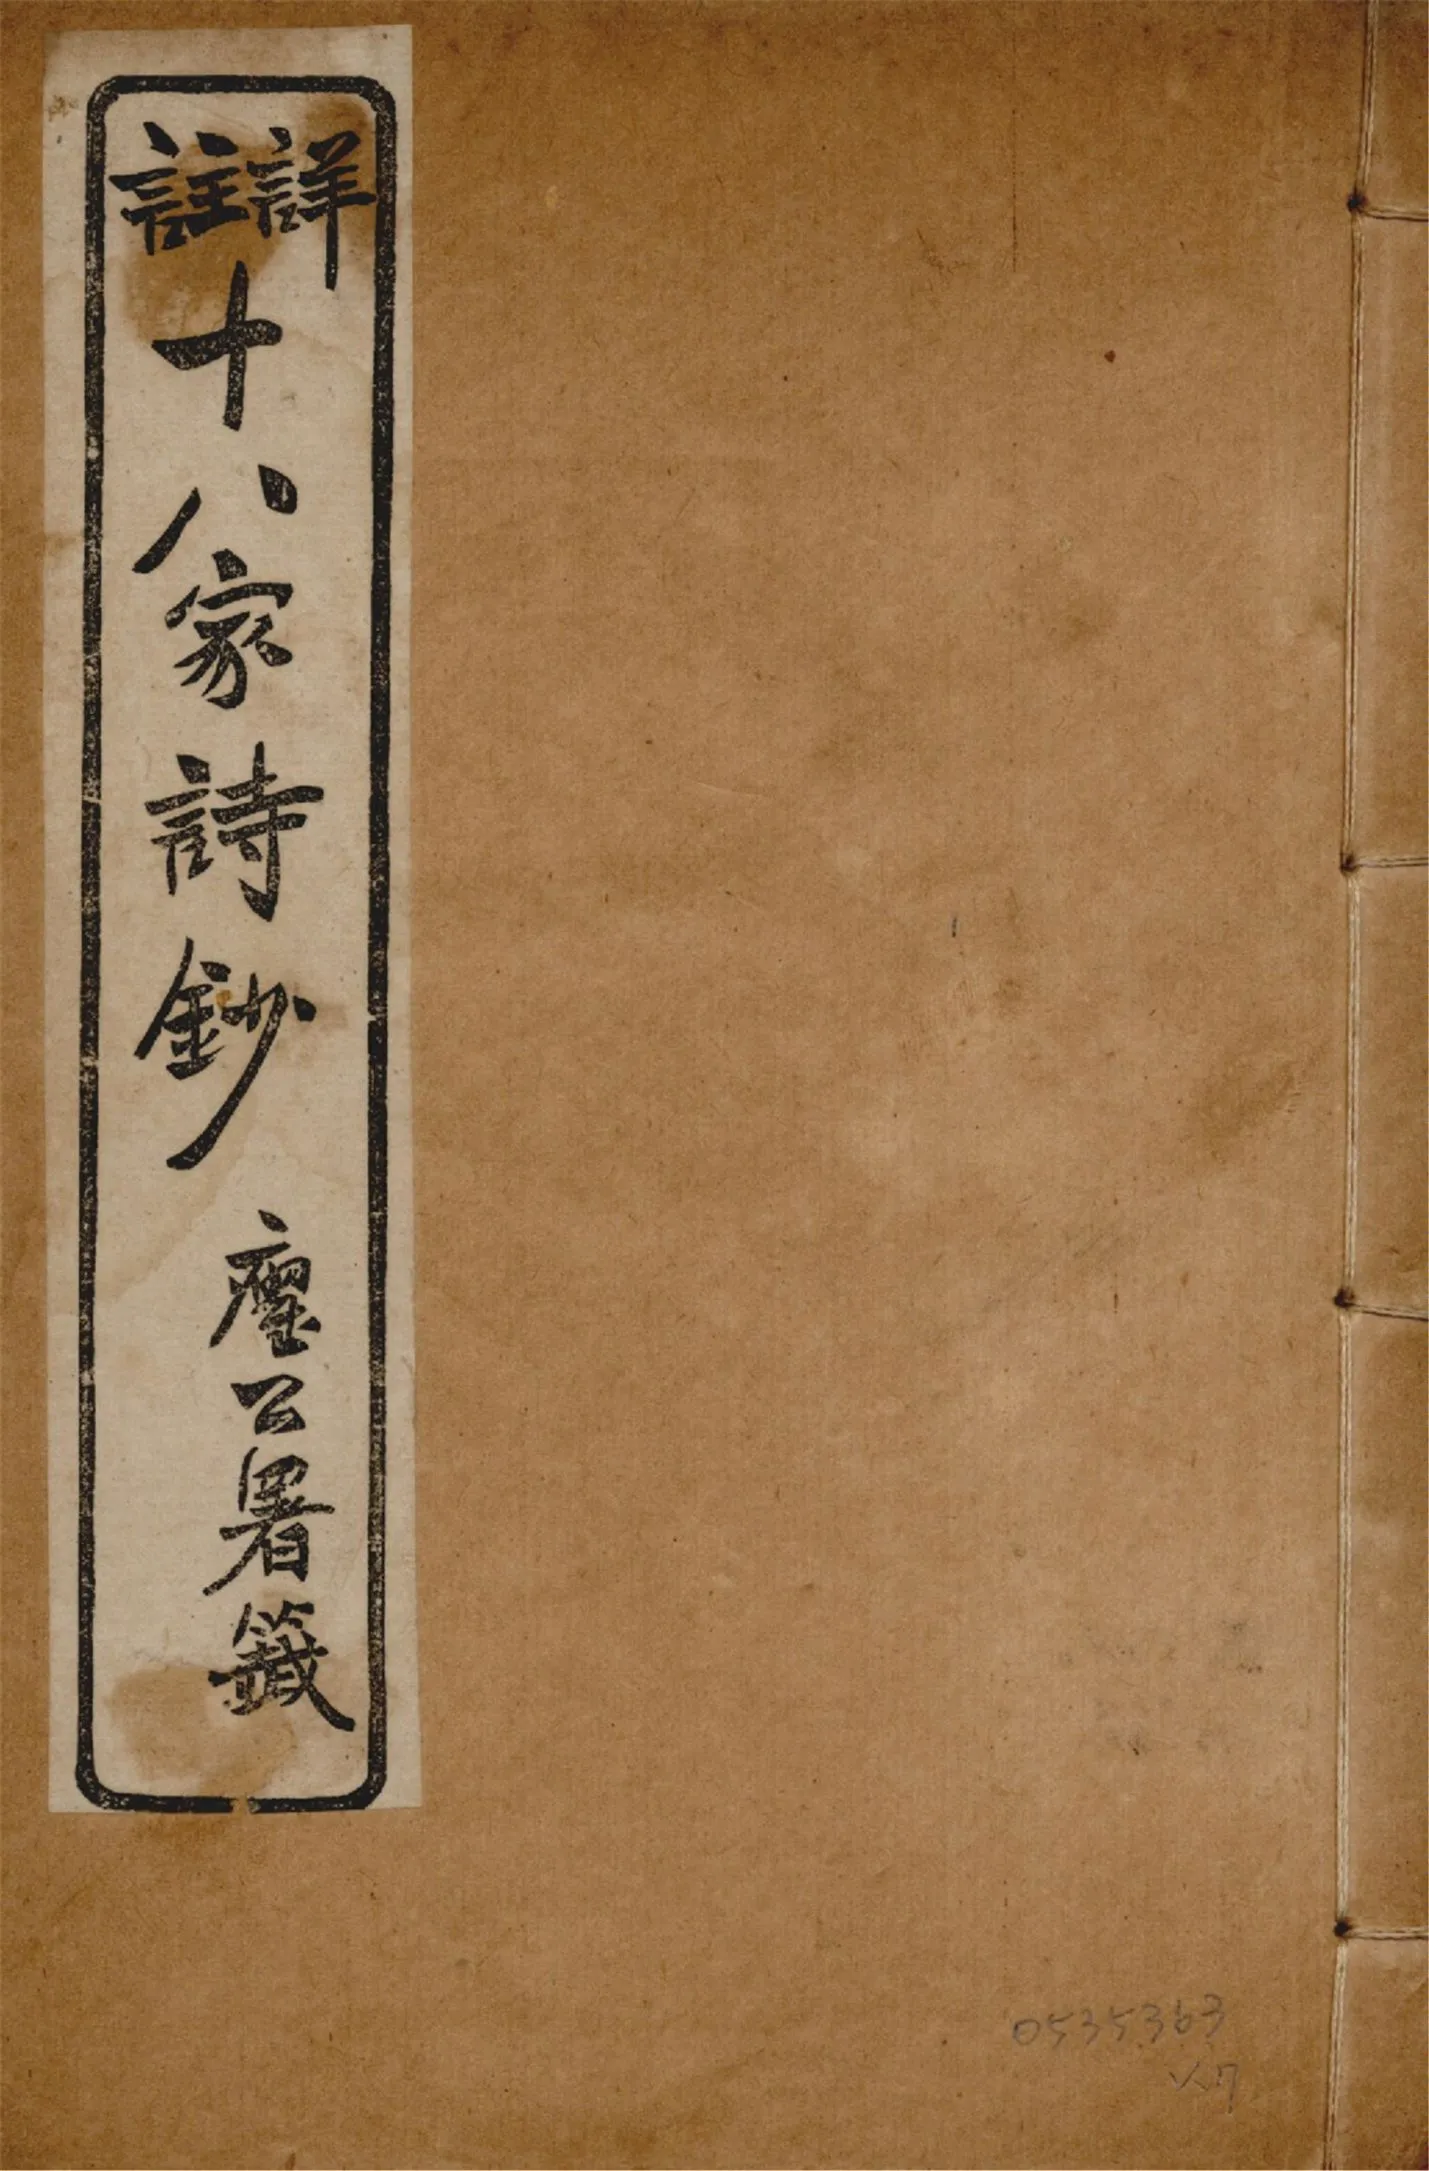 詳註
十八家詩鈔
公署籤
0535363